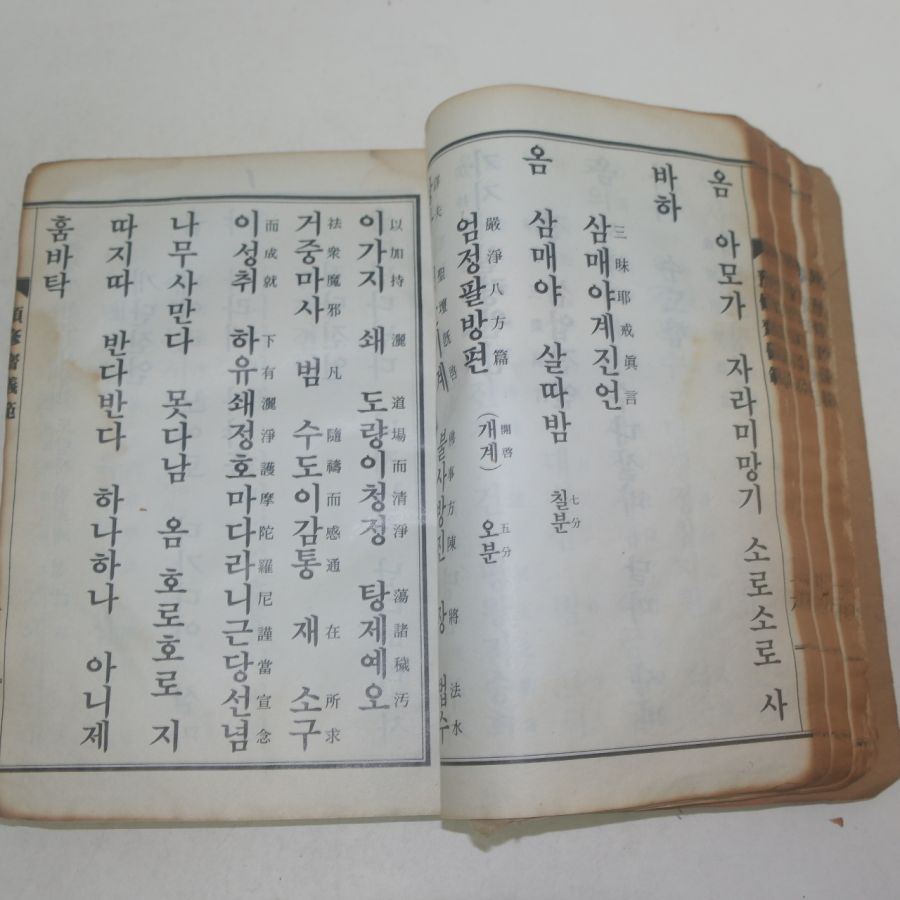 옴 아모가 자라미망기 소로소로 사
바하
삼매야계진언 三昧耶戒眞言
옴 삼매야 살따밤 칠분 七分
엄정팔방편 嚴淨八方篇 (개계) 開啓 오분 五分
이가지 쇄 도량이청정 탕제예오 以加持 灑 道場而清淨 蕩諸穢汚
거중마사 범 수도이감통 재 소구 祛衆魔邪 凡 隨禱而感通 在 所求
이성취 하유쇄정호마다라니근당선념 而成就 下有灑淨護摩陀羅尼謹當宣念
나무사만다 못다남 옴 호로호로 지
따지따 반다반다 하나하나 아니제
훔바탁